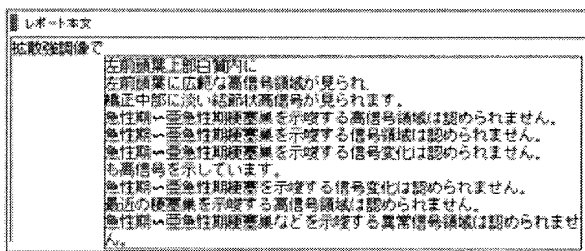 レポート本文
拡散強調像で
左前頭葉上部白質内に
左前頭葉に広範な高信号領域が見られ
橋正中部に淡い結節状高信号が見られます。
急性期～亜急性期梗塞巣を示唆する高信号領域は認められません。
急性期～亜急性期梗塞巣を示唆する信号変化は認められません。
急性期～亜急性期梗塞巣を示唆する信号変化は認められません。
も高信号を示しています。
急性期～亜急性期梗塞を示唆する信号変化は認められません。
最近の梗塞巣を示唆する高信号領域は認められません。
急性期～亜急性期梗塞巣などを示唆する異常信号領域は認められませ
ん。